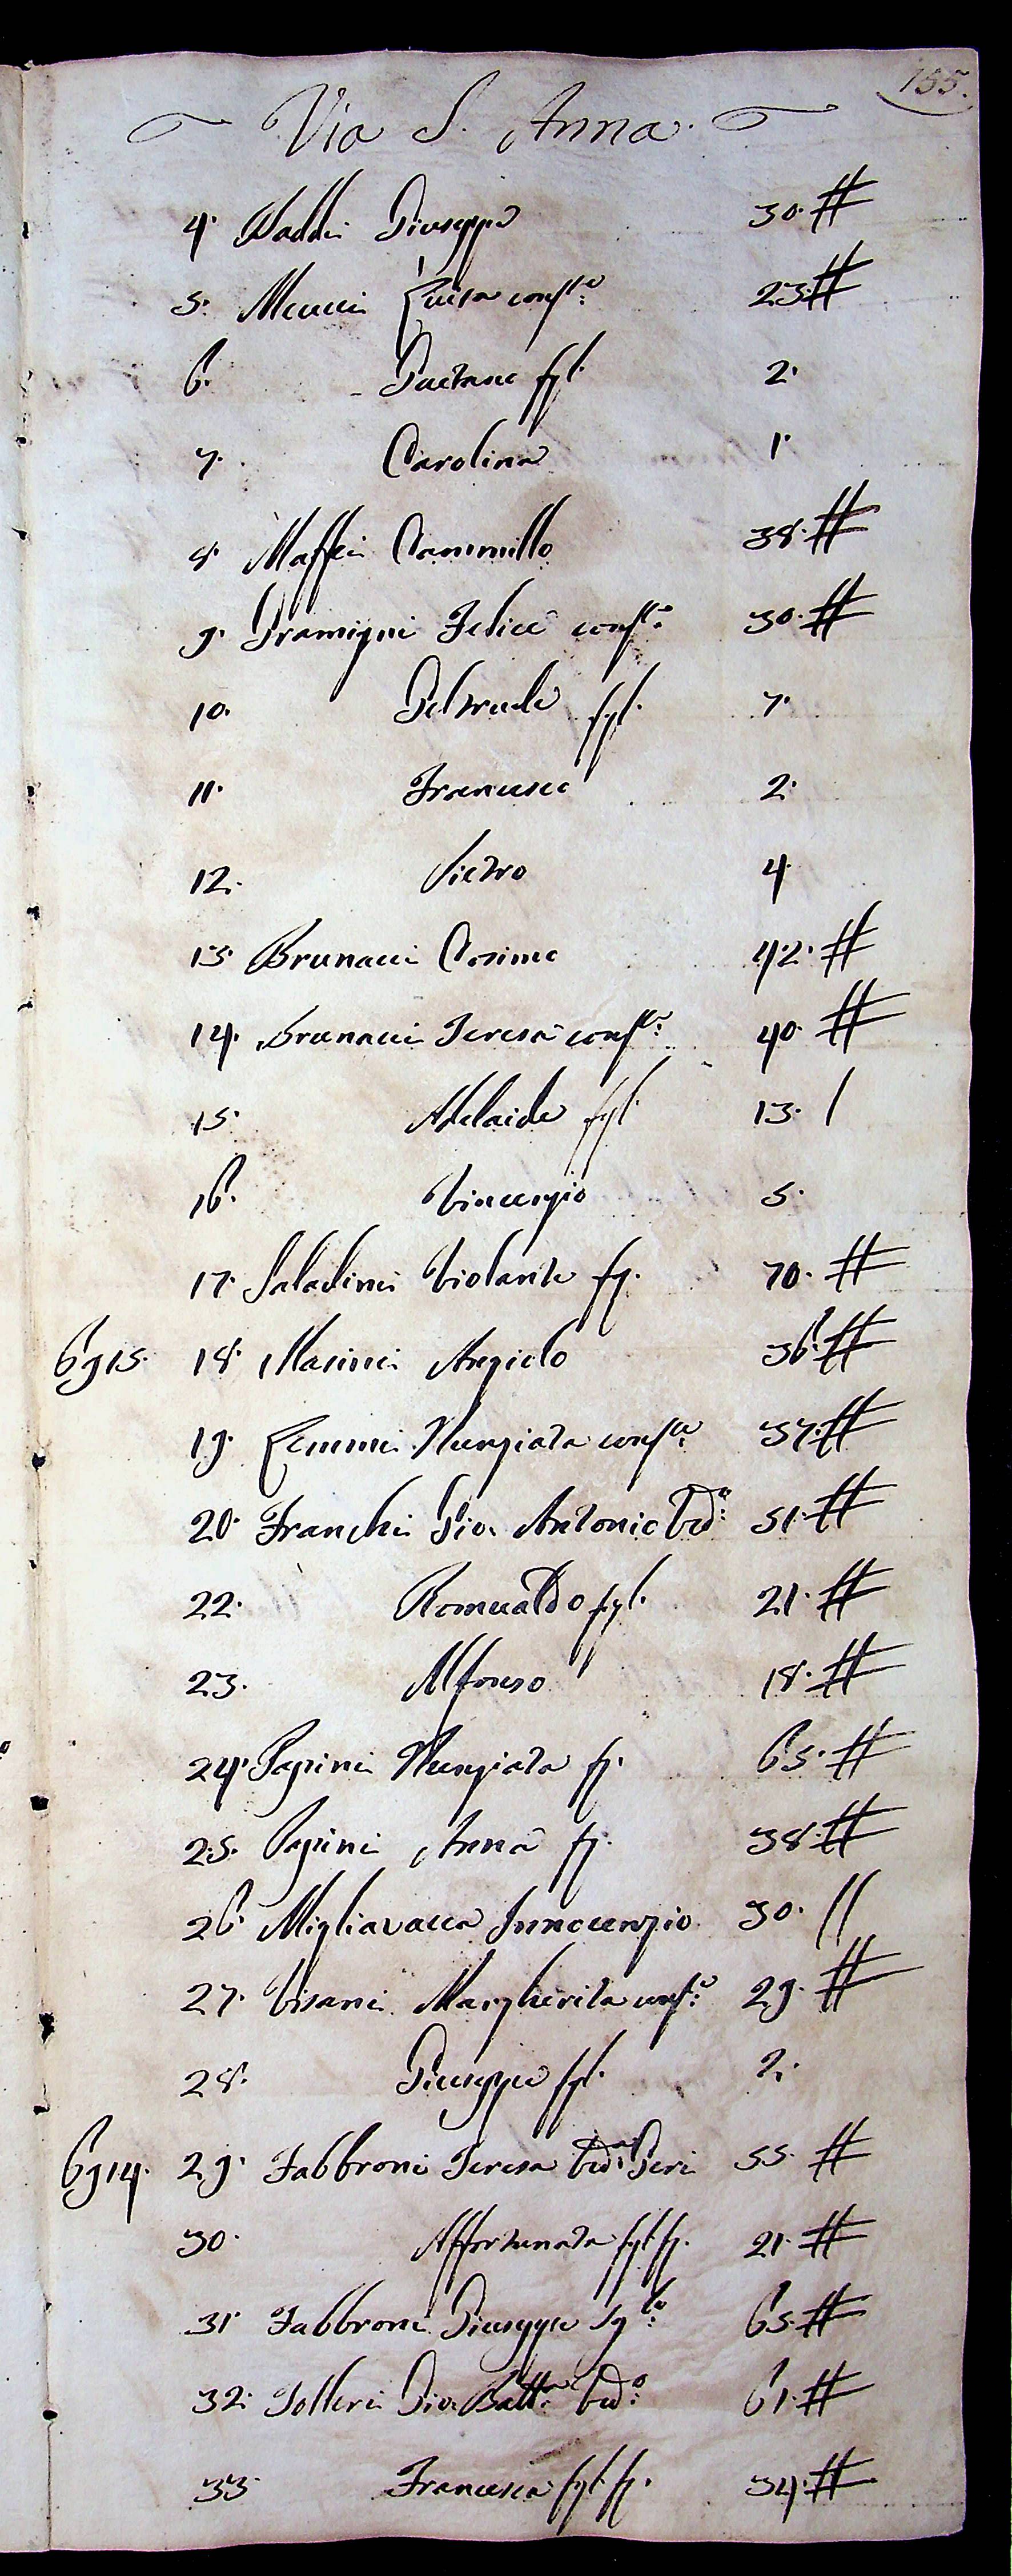 155.
Via S. Anna.
4. Naddi Giuseppe 30. #
5. Meucci Luisa cons.te 23. #
6. Gaetano fgl. 2.
7. Carolina 1.
8. Maffei Cammillo 38. #
9. Gramigni Felice cons.te 30. #
10. Geltrude fgl. 7.
11. Francesco 2.
12. Pietro 4
13. Brunacci Cosimo 42. #
14. Brunacci Teresa cons.te 40. #
15. Adelaide fgl. 13. /
16. Vincenzio 5.
17. Saladini Violante fg. 70. #
6915. 18. Masini Angiolo 36. #
19. Lemmi Nunziata cons.te 37. #
20. Franchi Gio. Antonio Ved.o 51. #
22. Romualdo fgl. 21. #
23. Alfonso 18. #
24. Papini Nunziata fg. 65. #
25. Papini Anna fg. 38. #
26. Migliavacca Innocenzio 30. //
27. Visani Margherita cons.te 29. #
28. Giuseppe fgl. 2.
6914. 29. Fabbroni Teresa Ved.a Peri 55. #
30. Affortunata fgl. fg. 21. #
31. Fabbroni Giuseppe Sg.lo 65. #
32. Solleri Gio. Batt.a Ved.o 61. #
33. Francesca fgl. fg. 34. #